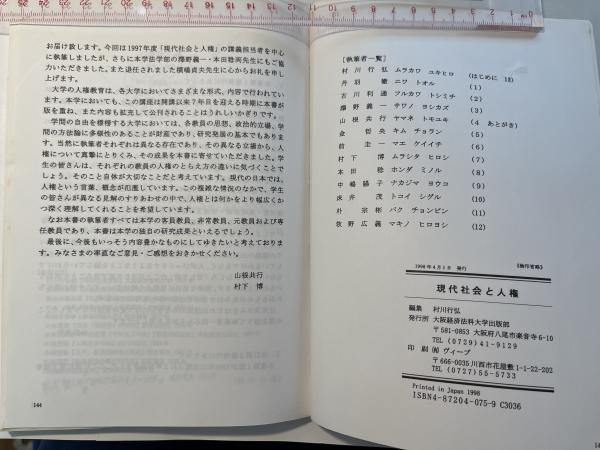 お届け致します。今回は1997年度「現代社会と人権」の講義担当者を中心
に執筆しましたが、さらに本学法学部の澤野義一・本田稔両先生にもご協
力いただきました。また退任されました横嶋貞夫先生に心からお礼を申し
上げます。
大学の人権教育は、各大学においてさまざまな形式、内容で行われてい
ます。本学においても、この講座は開講以来7年目を迎える時期に本書が
版を重ね、また内容も拡充して公刊されることはうれしいかぎりです。
学問の自由を標榜する大学においては、各教員の思想、政治的立場、学
問の方法論に多様性のあることが財産であり、研究発展の基本でもありま
す。当然に執筆者それぞれは異なる存在であり、その異なる立場から、人
権について真摯にとりくみ、その成果を本書に寄せていただきました。学
生の皆さんは、それぞれの教員の人権のとらえ方の違いに気づくことで
しょう。そのこと自体が大切なことだと考えています。現代の日本では、
人権という言葉、概念が氾濫しています。この複雑な情況のなかで、学生
の皆さんが異なる見解のすりあわせの中で、人権とは何かをより幅広くか
つ深く理解してくれることを希望しています。
なお本書の執筆者すべては本学の客員教員、非常教員、元教員および専
任教員であり、本書は本学の独自の研究成果といえるでしょう。
最後に、今後もいっそう内容豊かなものにしてゆきたいと考えておりま
す。みなさまの率直なご意見・ご感想をおきかせください。
山根共行
村下 博
144
[執筆者一覧]
村川行弘 ムラカワ ユキヒロ (はじめに 13)
丹羽 徹 ニワ トオル (1)
古川利通 フルカワ トシミチ (2)
澤野義一 サワノ ヨシカズ (3)
山根共行 ヤマネ トモユキ (4 あとがき)
金 哲央 キム チョラン (5)
前 圭一 マエ ケイイチ (6)
村下 博 ムラシタ ヒロシ (7)
本田 稔 ホンダ ミノル (8)
中嶋陽子 ナカジマ ヨウコ (9)
床井 茂 トコイ シゲル (10)
朴 宗彬 パク チョンビン (11)
牧野広義 マキノ ヒロヨシ (12)
1998年4月1日 発行 《検印省略》
現代社会と人権
編集 村川行弘
発行所 大阪経済法科大学出版部
〒581-0853 大阪府八尾市楽音寺6-10
TEL (0729)41-9129
印刷 ㈲ ヴィープ
〒666-0035 川西市花屋敷1-1-22-202
TEL (0727)55-5733
Printed in Japan 1998
ISBN4-87204-075-9 C3036